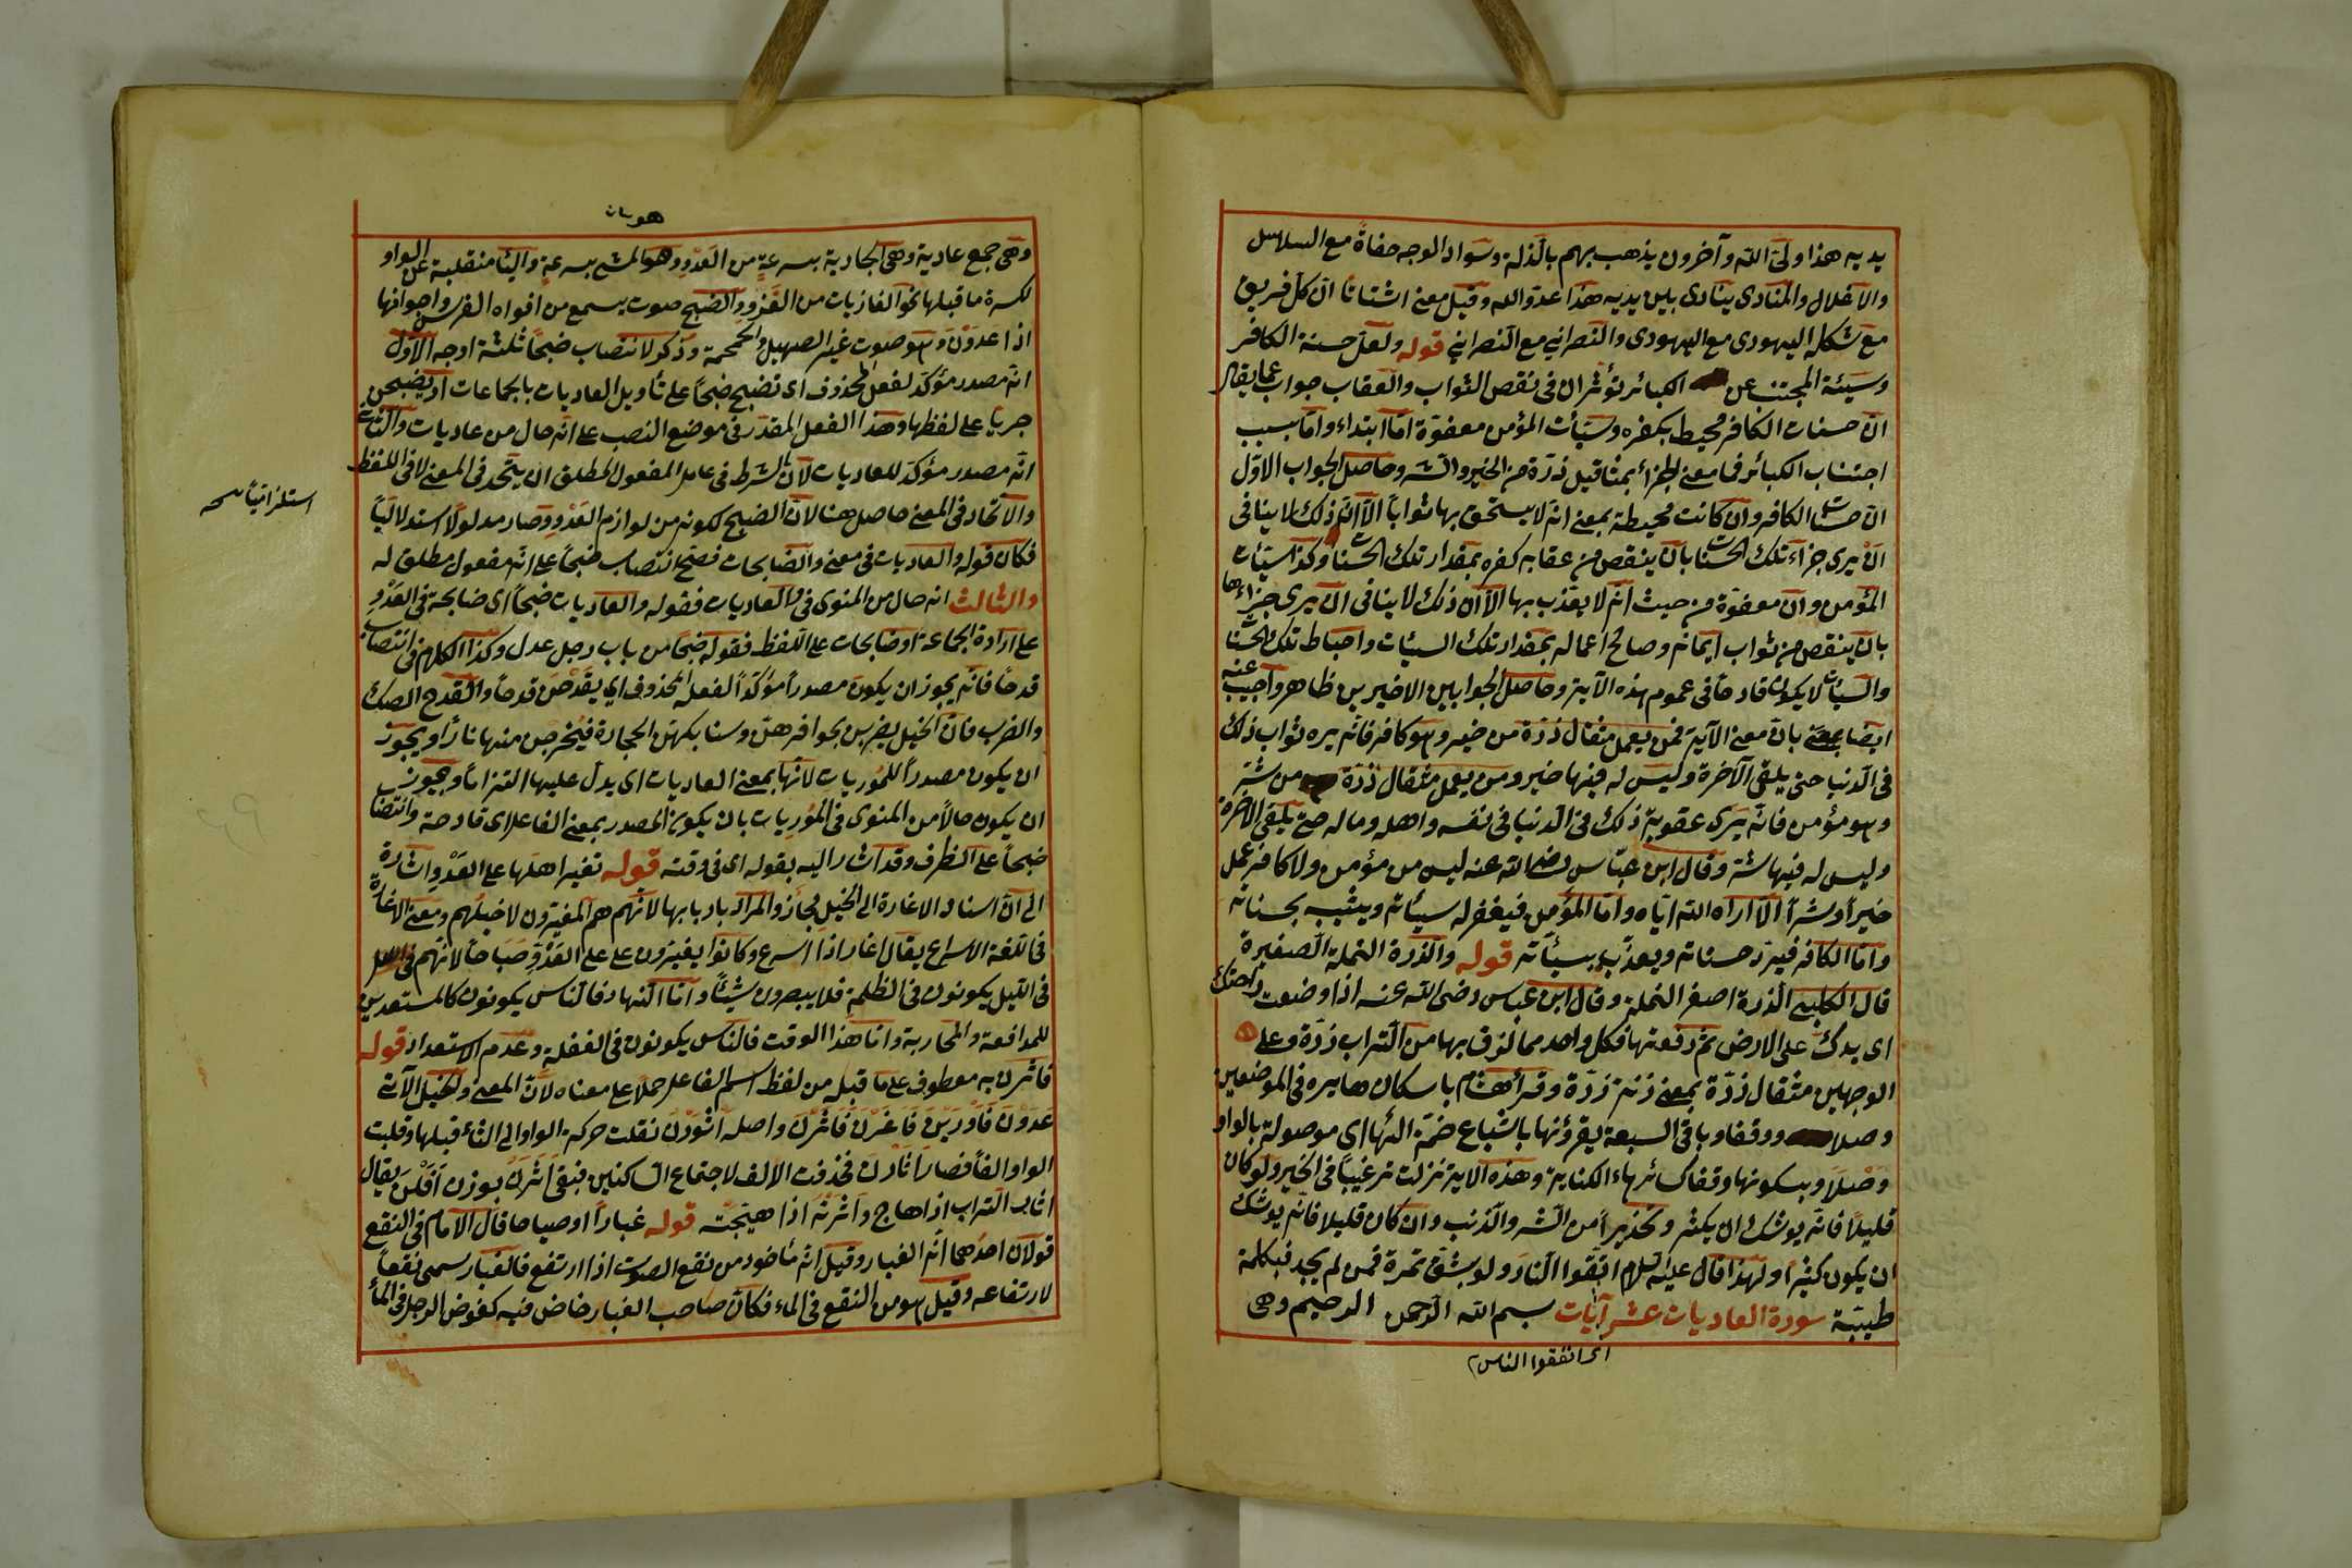 يديه هذا ولى الله وآخرون يذهب بهم بالذلة وسواد الوجه حفاة مع السلاسل
والاغلال والمنادى ينادى بين يديه هذا عدو الله وقيل معنى اشتاتا ان كل فريق
مع شكله اليهودى مع اليهودى والنصرانى مع النصرانى قوله ولعل حسنة الكافر
وسيئة المجتنب عن الكبائر تؤثران فى نقص الثواب والعقاب جواب عما يقال
ان حسنات الكافر محيط بكفره وسيأت المؤمن معفوة اما ابتداء واما بسبب
اجتناب الكبائر فما معنى الجزاء بمثاقيل ذرة من الخير والشر وحاصل الجواب الاول
ان حسنات الكافر وان كانت محيطة بمعنى انه لا يستحق بها ثوابا الا ان ذلك لا ينافى
ان يرى جزاء تلك الحسنات بان ينقص من عقابه كفره بمقدار تلك الحسنات وكذا سيئات
المؤمن وان معفوة من حيث انه لا يعذب بها الا ان ذلك لا ينافى ان يرى جزاءها
بان ينقص من ثواب ايمانه وصالح اعماله بمقدار تلك السيئات واحباط تلك الحسنات
والسيئات لا يكون قادحا فى عموم هذه الآية وحاصل الجوابين الاخيرين ظاهر واجيب عنه
ايضا بان معنى الآية فمن يعمل مثقال ذرة من خير وهو كافر فانه يره ثواب ذلك
فى الدنيا حتى يلقى الآخرة وليس له فيها خير ومن يعمل مثقال ذرة من شر
وهو مؤمن فانه يرى عقوبة ذلك فى الدنيا فى نفسه واهله وماله حتى يلقى الآخرة
وليس له فيها شر وقال ابن عباس رضى الله عنه ليس من مؤمن ولا كافر عمل
خيرا وشرا الا اراه الله اياه واما المؤمن فيغفر له سيئاته ويثيب بحسناته
واما الكافر فيرد حسناته ويعذب بسيئاته قوله والذرة النملة الصغيرة
قال الكلبى الذرة اصغر النملة وقال ابن عباس رضى الله عنه اذا وضعت راحتك
اى يدك على الارض ثم رفعتها فكل واحد مما لزق بها من التراب ذرة وعلى
الوجهين مثقال ذرة بمعنى زنة ذرة وقرأ هشام باسكان هايره فى الموضعين
وصلا ووقفا وباقى السبعة يقرؤنها باشباع ضمة الهاء اى موصولة بالواو
وصلا وبسكونها وقفا كسائر هاء الكناية وهذه الاية نزلت ترغيبا فى الخير ولو كان
قليلا فانه يوشك ان يكثر وتحذيرا من الشر والذنب وان كان قليلا فانه يوشك
ان يكون كثيرا ولهذا قال عليه السلام اتقوا النار ولو بشق تمرة فمن لم يجد فبكلمة
طيبة سورة العاديات عشر آيات بسم الله الرحمن الرحيم وهى
اى اتفقوا الناس
وهى جمع عادية وهى الجارية بسرعة من العدو وهو المشى بسرعة والياء منقلبة عن الواو
لكسرة ما قبلها نحو الغازيات من الغزو والضبح صوت يسمع من افواه الفرس واجوافها
اذا عدون وهو صوت غير الصهيل والحمحمة وذكر لانتصاب ضبحا ثلثة اوجه الاول
انه مصدر مؤكد لفعل المحذوف اى تضبح ضبحا على تأويل العاديات بالجماعات او يضبحن
جريا على لفظها وهذا الفعل المقدر فى موضع النصب على انه حال من عاديات والثانى
انه مصدر مؤكد للعاديات لان الشرط فى عامل المفعول المطلق ان يتحد فى المعنى لا فى اللفظ
والاتحاد فى المعنى حاصل هنا لان الضبح لكونه من لوازم العدو وصار مدلولا استدلاليا
فكان قوله والعاديات فى معنى والضابحات فصح انتصاب ضبحا على انه مفعول مطلق له
والثالث انه حال من المنوى فى والعاديات فقوله والعاديات ضبحا اى ضابحة فى العدو
على ارادة الجماعة او ضابحات على اللفظ فقوله ضبحا من باب رجل عدل وكذا الكلام فى انتصاب
قدحا فانه يجوز ان يكون مصدرا مؤكدا لفعله المحذوف اى يقدحن قدحا والقدح الصك
والضرب فان الخيل يضربن بحوافرهن وسنابكهن الحجارة فيخرجن منها نارا ويجوز
ان يكون مصدرا للموريات لانها بمعنى العاديات اى يدل عليها التزاما ويجوز
ان يكون حالا من المنوى فى الموريات بان يكون المصدر بمعنى الفاعل اى قادحة وانتصاب
ضبحا على الظرف وقد اشار اليه بقوله اى فى وقته قوله تغير اهلها على العدو اشارة
الى ان اسناد الاغارة الى الخيل مجاز والمراد باربابها لانهم هم المغيرون لا خيلهم ومعنى الاغارة
فى اللغة الاسراع يقال اغار اذا اسرع وكانوا يغيرون على العدو صباحا لانهم
فى الليل يكونون فى الظلمة فلا يبصرون شيئا واما النهار فالناس يكونون كالمستعدين
للمدافعة والمحاربة واما هذا الوقت فالناس يكونون فى الغفلة وعدم الاستعداد قوله
فاثرن به معطوف على ما قبله من لفظ اسم الفاعل حملا على معناه لان المعنى والخيل الآتى
عدون فاورين فاغرن فاثرن واصله اثورن نقلت حركة الواو الى الثاء قبلها وقلبت
الواو الفا فصار اثارن فحذفت الالف لاجتماع الساكنين فبقى اثرن بوزن افلن يقال
اثار التراب اذا هاج واثرته اذا هيجته قوله غبارا او صياحا قال الامام فى النقع
قولان احدهما انه الغبار وقيل انه مأخوذ من نقع الصوت اذا ارتفع فالغبار سمى نقعا
لارتفاعه وقيل هو من النقع فى الماء فكان صاحب الغبار خاض فيه كخوض الرجل فى الماء